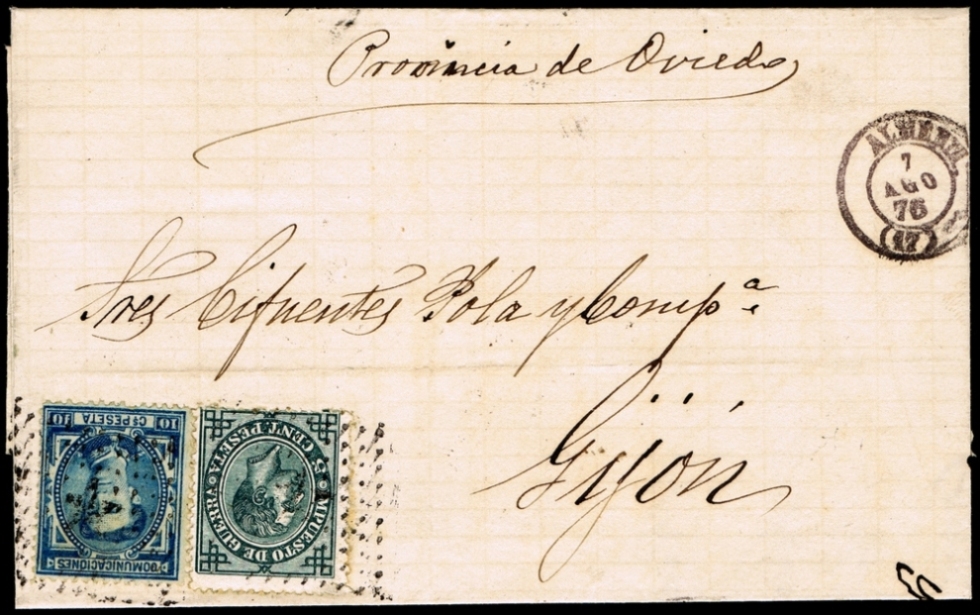 Provincia de Oviedo
7
AGO
76
(17)
Sres Cifuentes Pola y Compª
Gijón
10 Cs PESETA 10
COMUNICACIONES
5 CENT. PESETA
IMPUESTO DE GUERRA